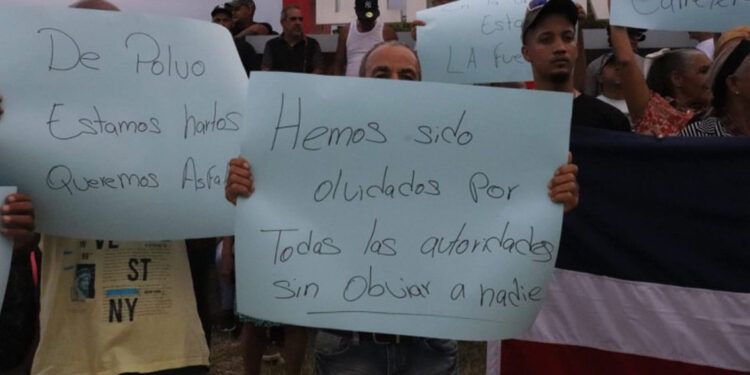 De Polvo
Estamos hartos
Queremos Asfal
Hemos sido
olvidados por
Todas las autoridades
sin Obviar a nadie
Esta
LA
Carretera
VE
ST
NY